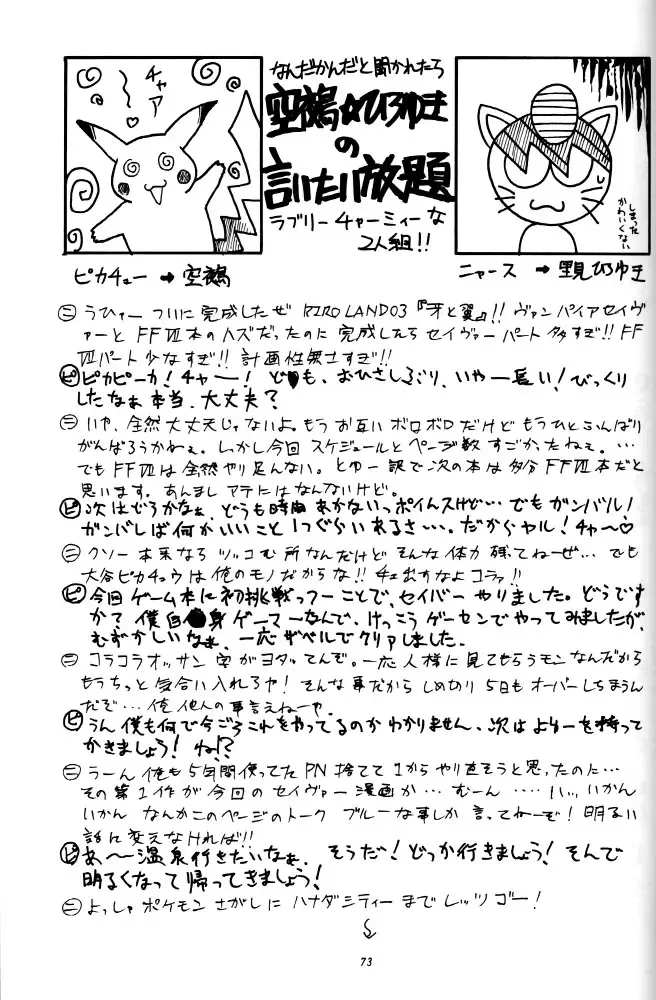 なんだかんだと聞かれたら
空鵺☆ひろゆき
の
言いたい放題
ラブリーチャーミィーな
2人組!!
チャア
ピカチュー → 空鵺
しまった
かわいくない
ニャース → 里見ひろゆき
ニ うひゃーついに完成したぜ RIROLAND03『牙と翼』!! ヴァンパイアセイヴ
ァーとFFⅦ本のハズだったのに完成したらセイヴァーパート多すぎ!! FF
Ⅶパート少なすぎ!! 計画性無さすぎ!!
ピ ピカピーカ! チャー! ども、おひさしぶり、いやー長い! びっくり
したなぁ本当、大丈夫?
ニ いや、全然大丈夫じゃないよ。もうお互いボロボロだけどもうひとふんばり
がんばろうかねぇ。しっかし今回スケジュールとページ数すごかったねぇ。…
でもFFⅦは全然やり足んない。とゆー訳で次の本は多分FFⅦ本だと
思います。あんましアテにはなんないけど。
ピ 次はどうかなぁ、どうも時間あかないっポイんスけど…でもガンバル!
ガンバレば何かいいこと1つぐらいあるさ…。だからヤル! チャ〜♡
ニ クソー本来ならツッコむ所なんだけどそんな体力残てねーぜ…でも
大谷ピカチュウは俺のモノだからな!! チェ出すなよコラァ!!
ピ 今回ゲーム本に初挑戦っつーことで、セイバーやりました。どうです
かァ? 僕自身ゲーマーなんで、けっこうゲーセンでやってみましたが、
むずかしいなぁ、一応ザベルでクリアしました。
ニ コラコラオッサン字がヨタッてんぞ。一応人様に見てもらうモンなんだから
もうちっと気合い入れろヤ! そんな事だからしめ切り5日もオーバーしちまうん
だぞ…俺他人の事言えねーや。
ピ うん僕も何で今ごろこれをやってるのかわかりません、次はよゆーを持って
かきましょう! ね!?
ニ うーん俺も5年間使ってたPN捨てて1からやり直そうと思ったのに…
その第1作が今回のセイヴァー漫画か…むーん…ハッ、いかん
いかんなんかこのページのトークブルーな事しか言ってねーぞ! 明るい
話に変えなければ!!
ピ あ〜温泉行きたいなぁ、そうだ! どっか行きましょう! そんで
明るくなって帰ってきましょう!
ニ よっしゃポケモンさがしにハナダシティーまでレッツゴー!
73